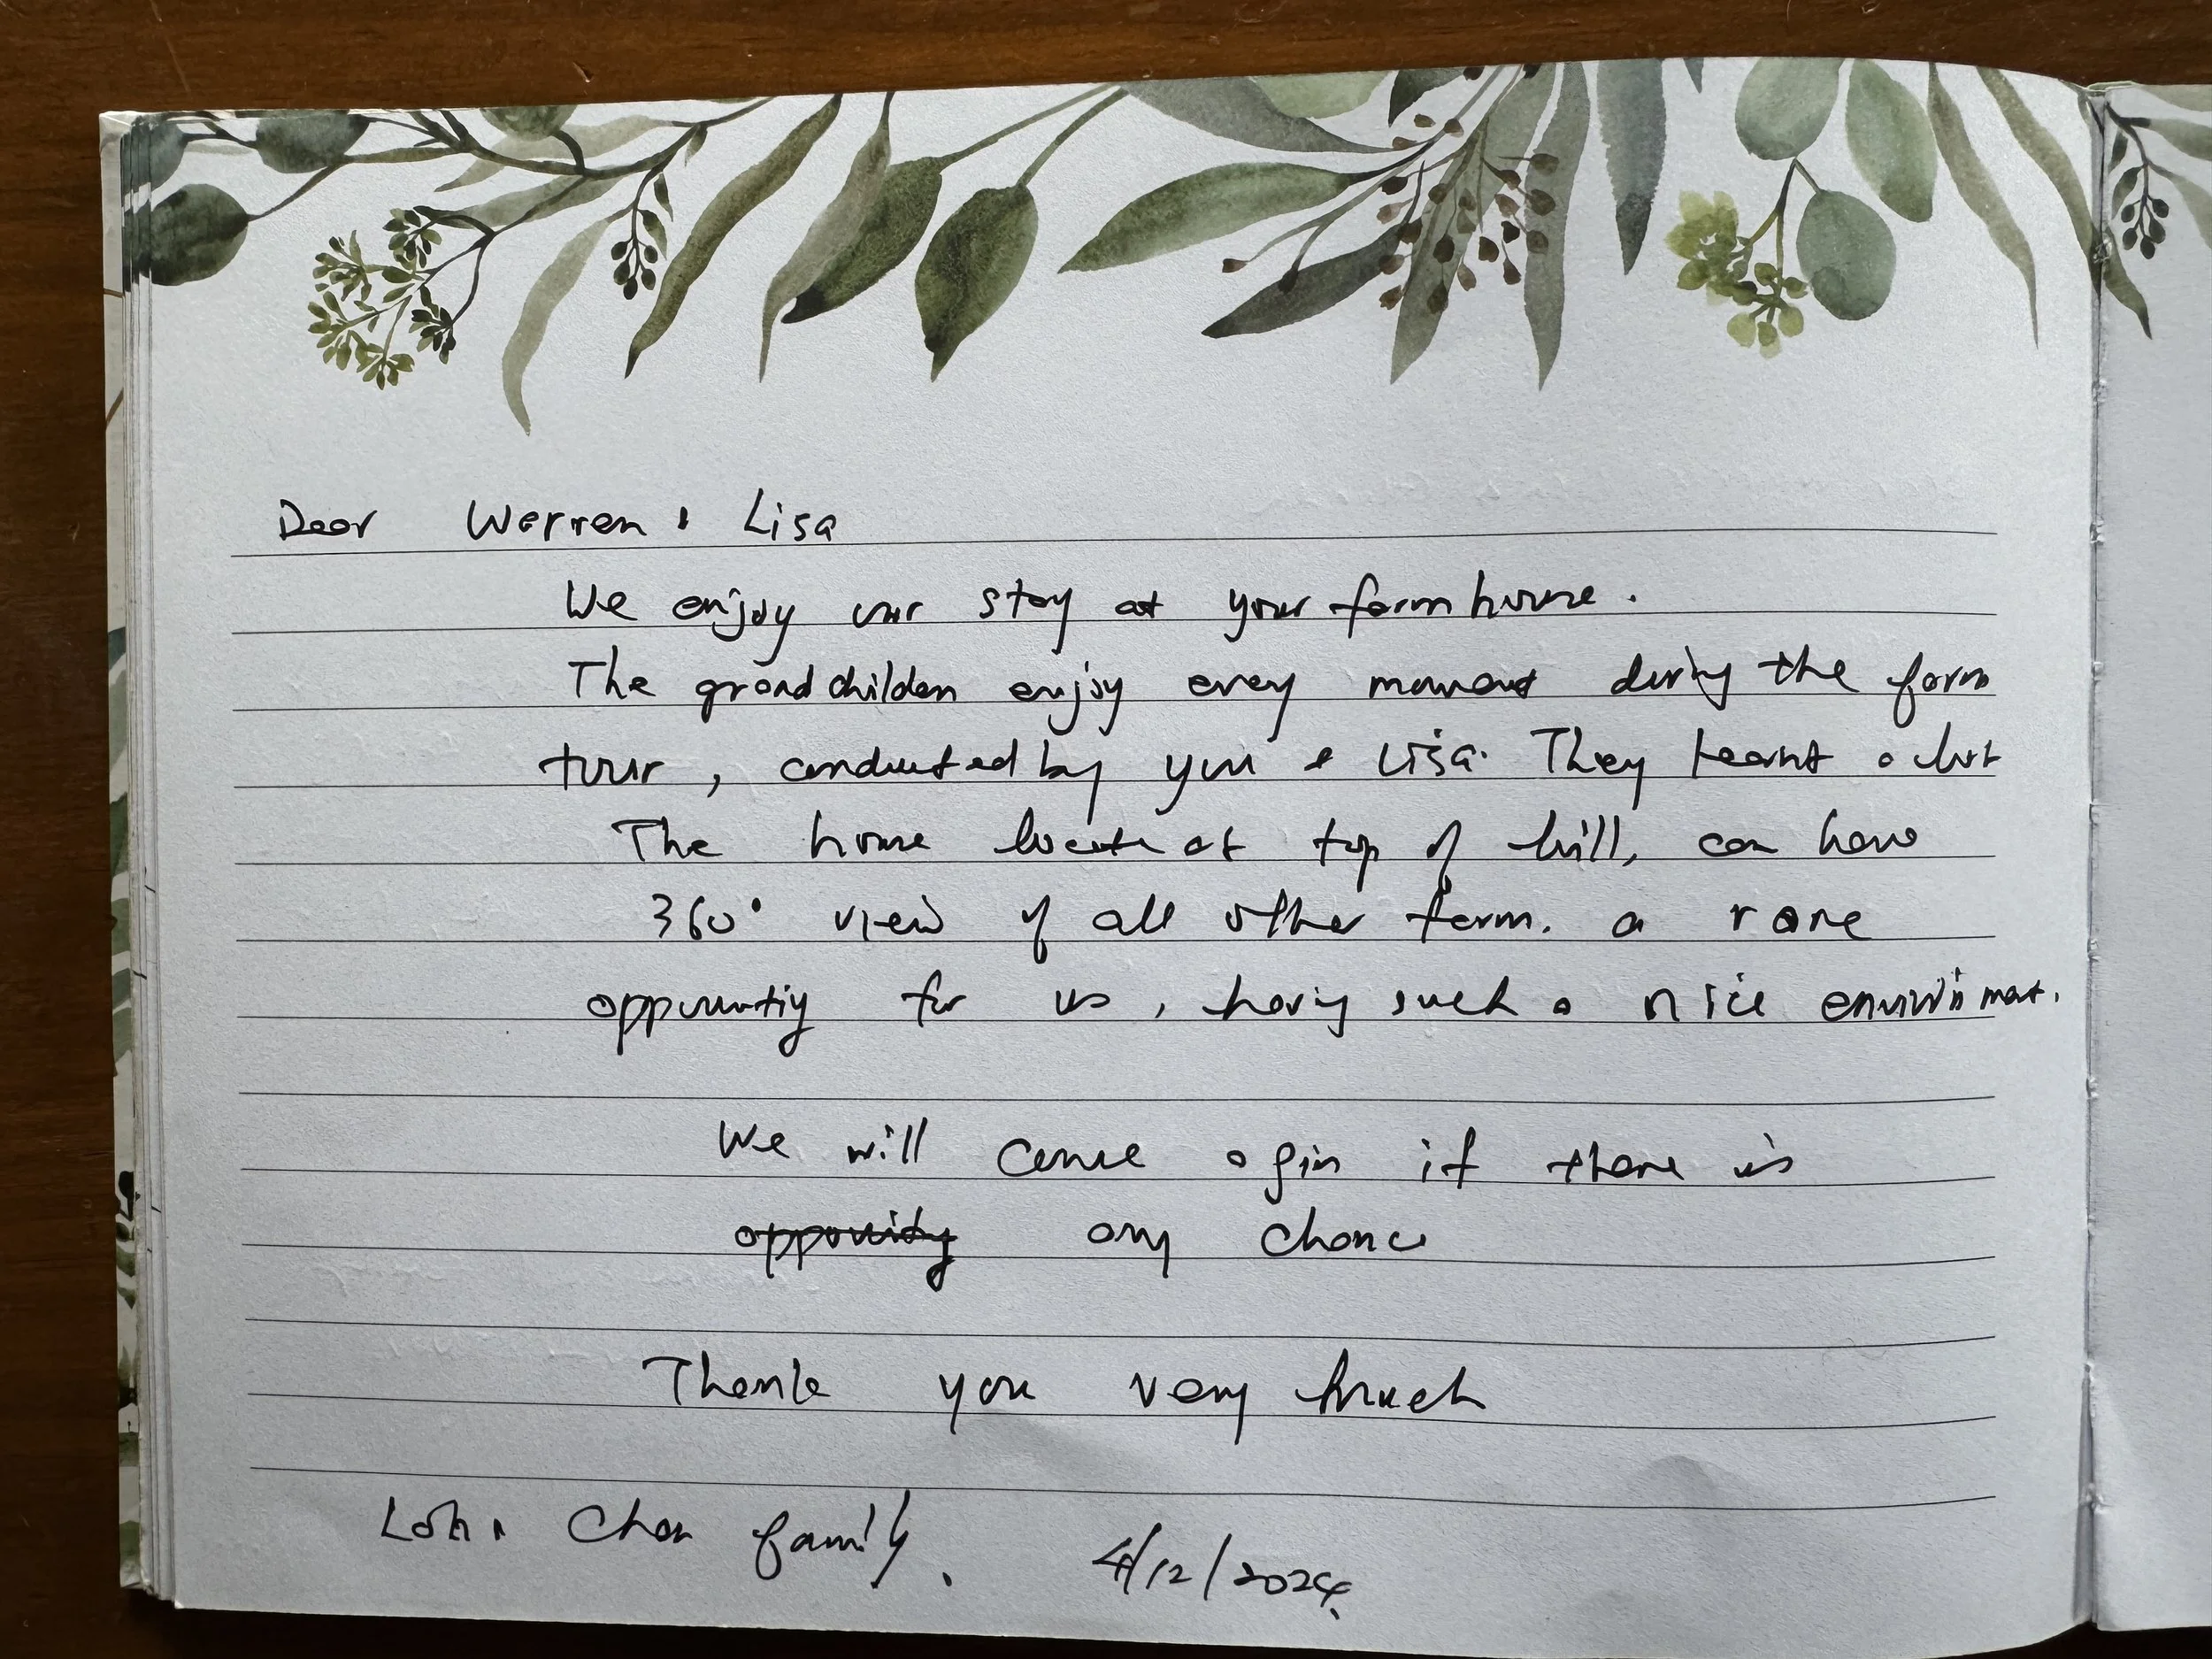 Dear Warren & Lisa
We enjoy our stay at your farm house.
The grandchilden enjoy every moment during the farm
tour, conducted by you & Lisa. They learnt a lot
The house locate at top of hill, can have
360° view of all other farm. a rare
for us, having such a nice
We will come agin if there is
any chance
Thank you very much
Loh & Chan family.
4/12/2024